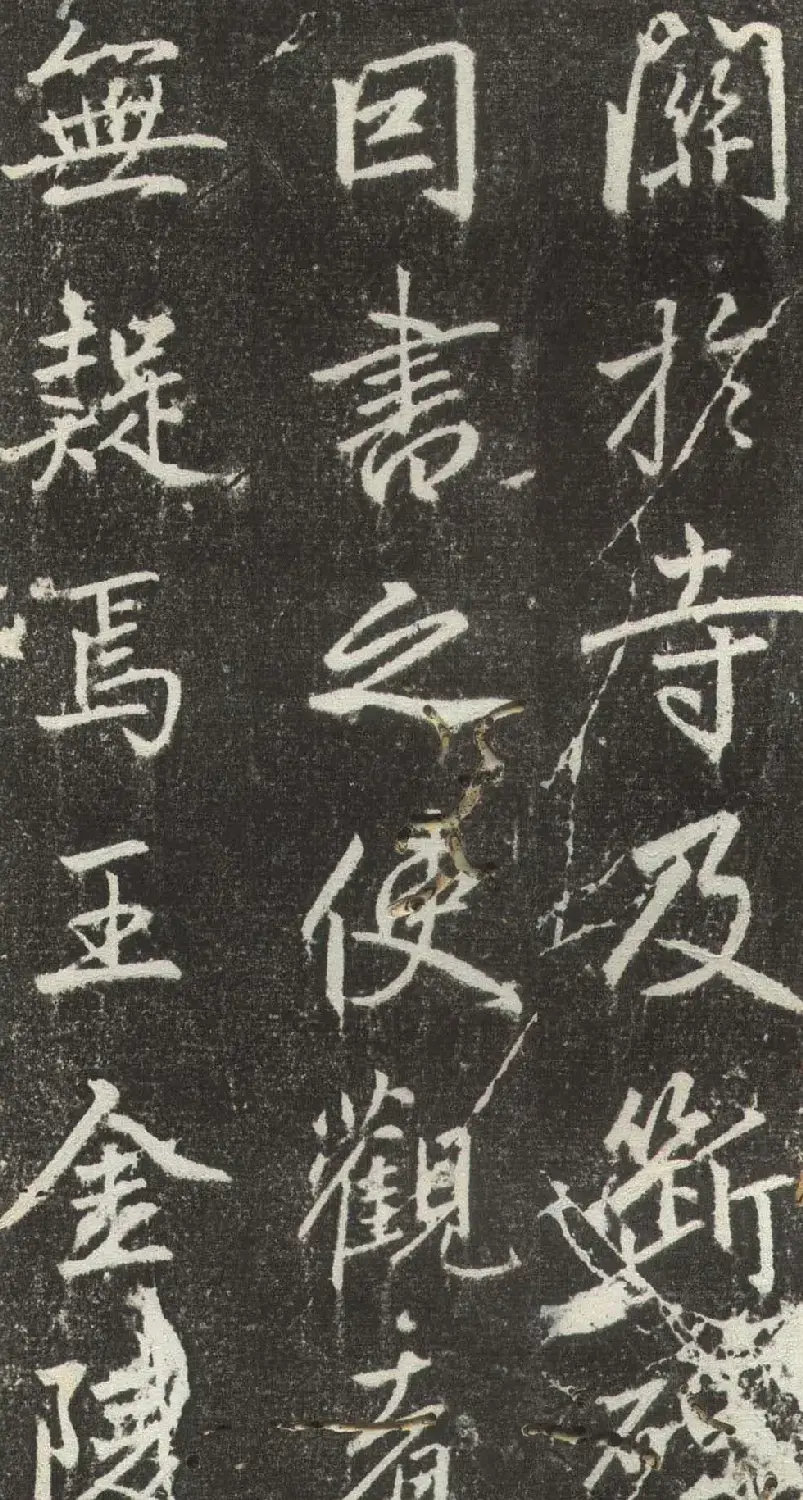 關於寺及斷
因書之使觀者
無疑焉王金陵